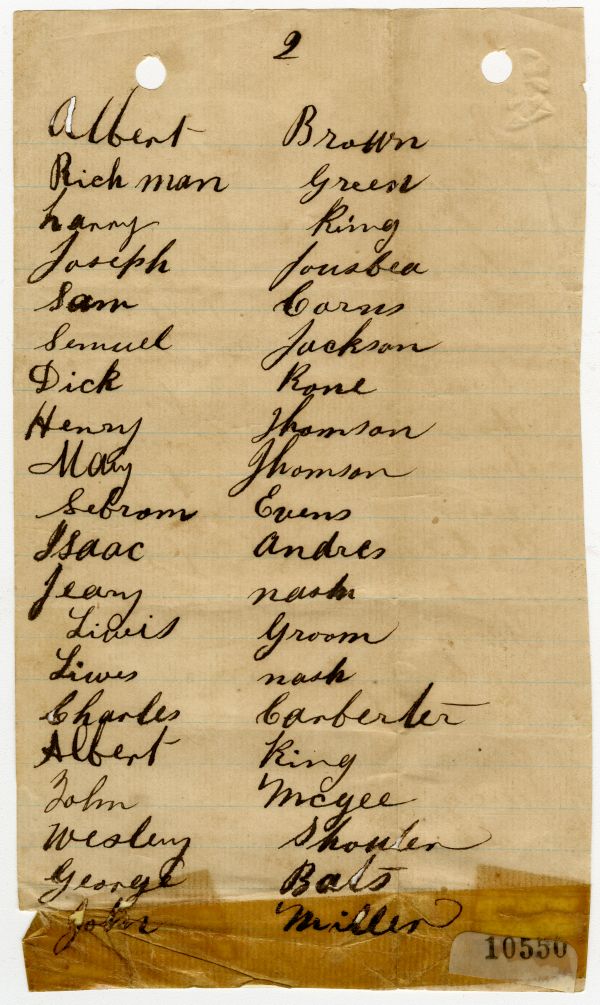 2
Albert Brown
Richman Green
harry King
Joseph Jousbea
Sam Corns
Semuel Jackson
Dick Rone
Henry Thomson
Mary Thomson
Sebrom Evens
Isaac Andres
Jeary nash
Liwis Groom
Liwes nash
Charles Carberter
Albert King
John Mcgee
Wesley Shouter
George Bats
John Miller
10550